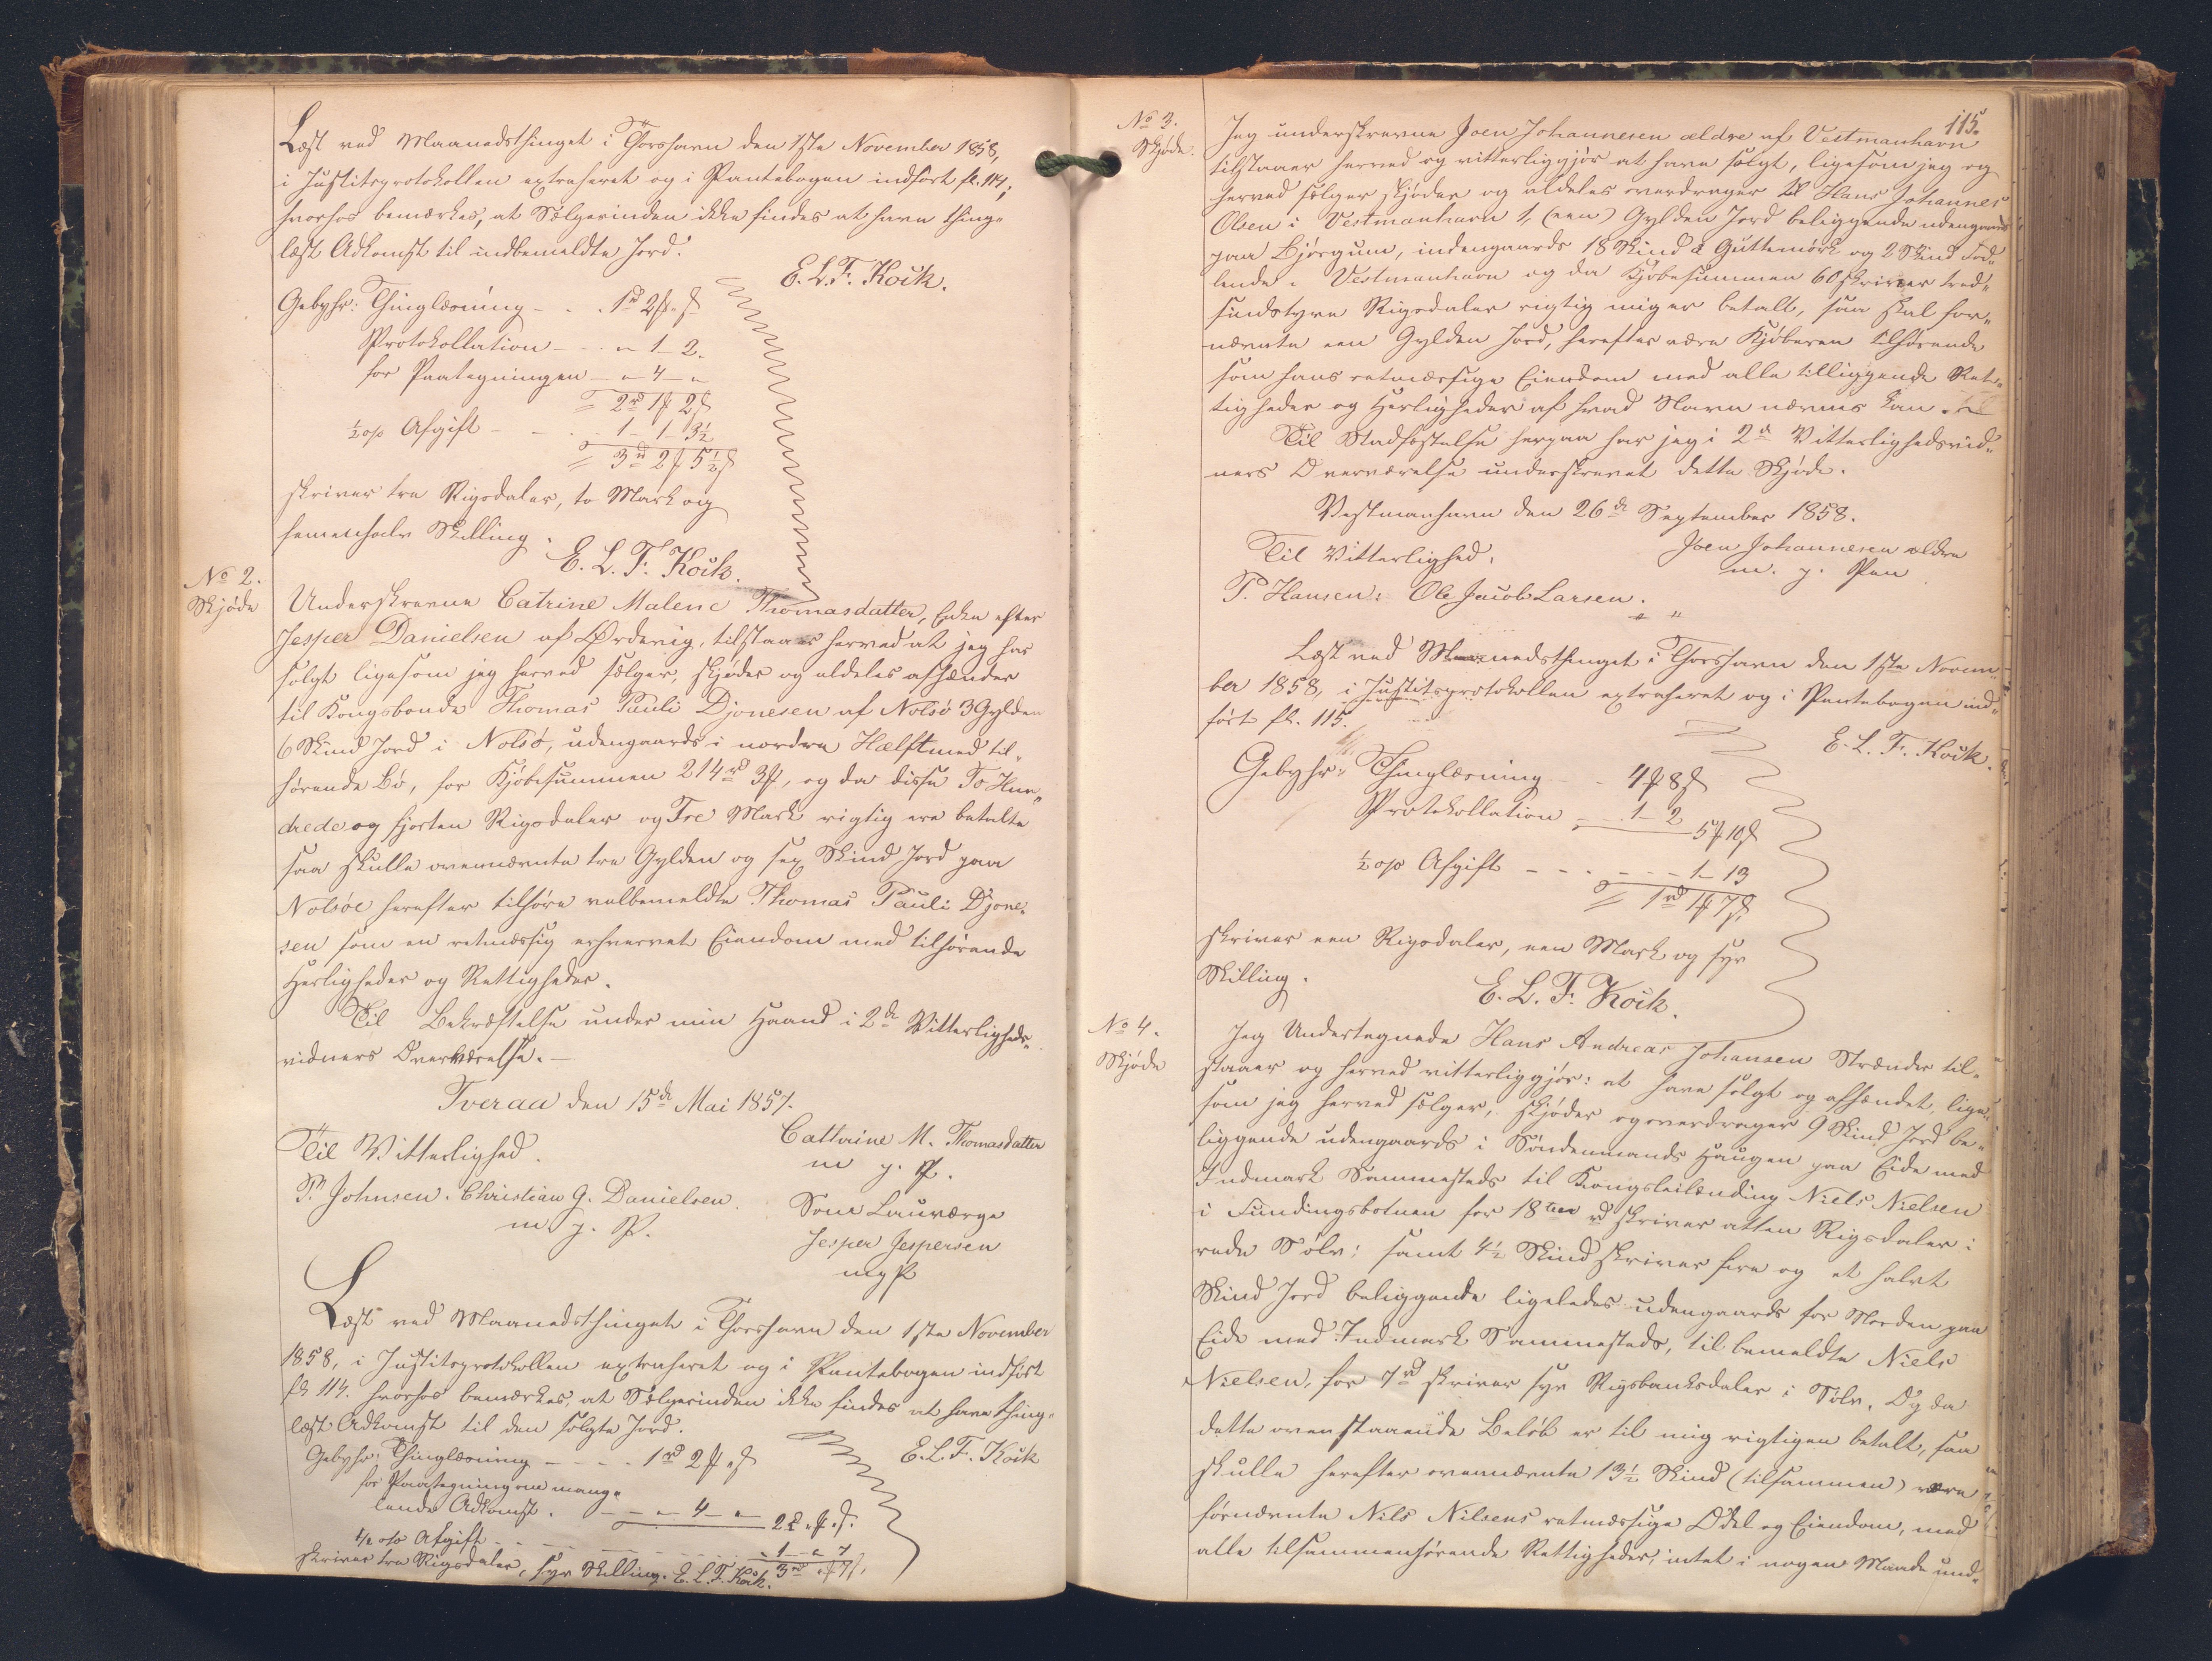 Læst ved Maanedsthinget i Thorshavn den 1ste November 1858,
i Justitsprotokollen extraheret og i Pantebogen indført fl. 114,
hvorhos bemærkes, at Sælgerinden ikke findes at have thing-
læst Adkomst til indbemeldte Jord.
E. L. F. Kock.
Gebyhr: Thinglæsning - - . 1rd 2 ß
Protokollation - - " 1 - 2.
for Paategningen - " 4 - "
= 2rd 1 2ß
½ % Afgift - - - 1 - 1 - 3½
= 3rd 2 5½ß
skriver tre Rigsdaler, to Mark og
femenhalv Skilling.
E. L. F. Kock.
No 2.
Skjøde
Underskrevne Catrine Malene Thomasdatter, Enke efter
Jesper Danielsen af Ørdevig, tilstaaer herved at jeg har
solgt ligesom jeg herved sælger, skjøder og aldeles afhænder
til Kongsbonde Thomas Pauli Djonesen af Nolsø 3 Gylden
6 Skind Jord i Nolsø, udengaards i nordre Hælft med til-
hørende Bø, for Kjøbesummen 214rd 3, og da disse To Hun-
drede og fjorten Rigsdaler og Tre Mark rigtig ere betalte
saa skulle ovennævnte tre Gylden og sex Skind Jord paa
Nolsøe herefter tilhøre velbemeldte Thomas Pauli Djone-
sen som en retmæssig erhvervet Eiendom med tilhørende
Herligheder og Rettigheder.
Til Bekræftelse under min Haand i 2de Vitterligheds-
vidners Overværelse. -
Tveraa den 15de Mai 1857.
Cathrine M. Thomasdatter
m. p. P.
Til Vitterlighed.
P. Johnsen. Christian G. Danielsen.
m. p. P.
Som Lauværge
Jesper Jespersen
m p P
Læst ved Maanedsthinget i Thorshavn den 1ste November
1858, i Justitsprotokollen extraheret og i Pantebogen indført
fl. 114. hvorhos bemærkes, at Sælgerinden ikke findes at have thing-
læst Adkomst til den solgte Jord.
E. L. F. Kock
Gebyhr: Thinglæsning - - - . 1rd 2 " ß
for Paategning om mang-
lende Adkomst. - - " 4 - " 2
½ % Afgift - - - 1 - " 7
3rd " 7ß.
skriver tre Rigsdaler, syv Skilling. E. L. F. Kock.
115.
No 3.
Skjøde.
Jeg underskrevne Joen Johannesen ældre af Vestmanhavn
tilstaaer herved og vitterliggjør at have solgt, ligesom jeg og
herved sælger, skjøder og aldeles overdrager til Hans Johannes
Olsen i Vestmanhavn 1, (een) Gylden Jord beliggende udengaards
paa Bjørgum, indengaards 18 Skind i Guttemørk og 2 Skind Fod-
lende i Vestmanhavn og da Kjøbesummen 60 skriver tred-
sindstyve Rigsdaler rigtig mig er betalt, saa skal for-
nævnte een Gylden Jord, herefter være Kjøberen tilhørende
som hans retmæssige Eiendom med alle tilliggende Ret-
tigheder og Herligheder af hvad Navn nævnes kan.
Til Stadfæstelse herpaa har jeg i 2de Vitterlighedsvid-
ners Overværelse underskrevet dette Skjøde.
Vestmanhavn den 26de September 1858.
Joen Johannesen ældre
m. p. Pen
Til Vitterlighed.
P. Hansen: Ole Jacob Larsen.
Læst ved Maanedsthinget i Thorshavn den 1ste Novem-
ber 1858, i Justitsprotokollen extraheret og i Pantebogen ind-
ført fl. 115.
E. L. F. Kock.
Gebyhr: Thinglæsning - 4 8ß
Protokollation - - 1 - 2
5 10ß
½ % Afgift - - - 1 - 13
= 1rd 1 7ß
skriver een Rigsdaler, een Mark og syv
Skilling.
E. L. F. Kock.
No 4.
Skjøde
Jeg Undertegnede Hans Andreas Johansen Strænder til-
staaer og herved vitterliggjør: at have solgt og afhændet, lige-
som jeg herved sælger, skjøder og overdrager 9 Skind Jord be-
liggende udengaards i Søndenmands Haugen paa Eide med
Indmark Sammesteds til Kongsleilænding Niels Nielsen
i Fundingsbotnen for 18 rd skriver atten Rigsdaler i
rede Sølv; samt 4½ Skind skriver fire og et halvt
Skind Jord beliggende ligeledes udengaards for Norden paa
Eide med Indmark Sammesteds, til bemeldte Niels
Nielsen, for 7rd skriver syv Rigsbanksdaler i Sølv. Og da
dette ovenstaaende Beløb er til mig rigtigen betalt, saa
skulle herefter ovennævnte 13½ Skind (tilsammen) være
førnævnte Nils Nilsens retmæssige Odel og Eiendom, med
alle tilsammenhørende Rettigheder, intet i nogen Maade und-